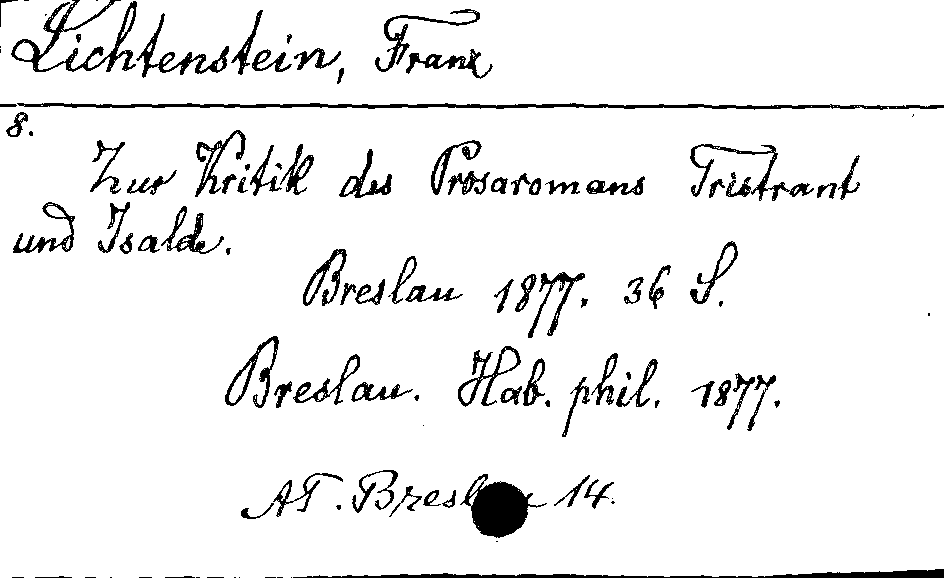 Lichtenstein, Franz
8.
Zur Kritik des Prosaromans Tristrant
und Isalde.
Breslau 1877. 36 S.
Breslau. Hab. phil. 1877.
AT. Breslau 14.